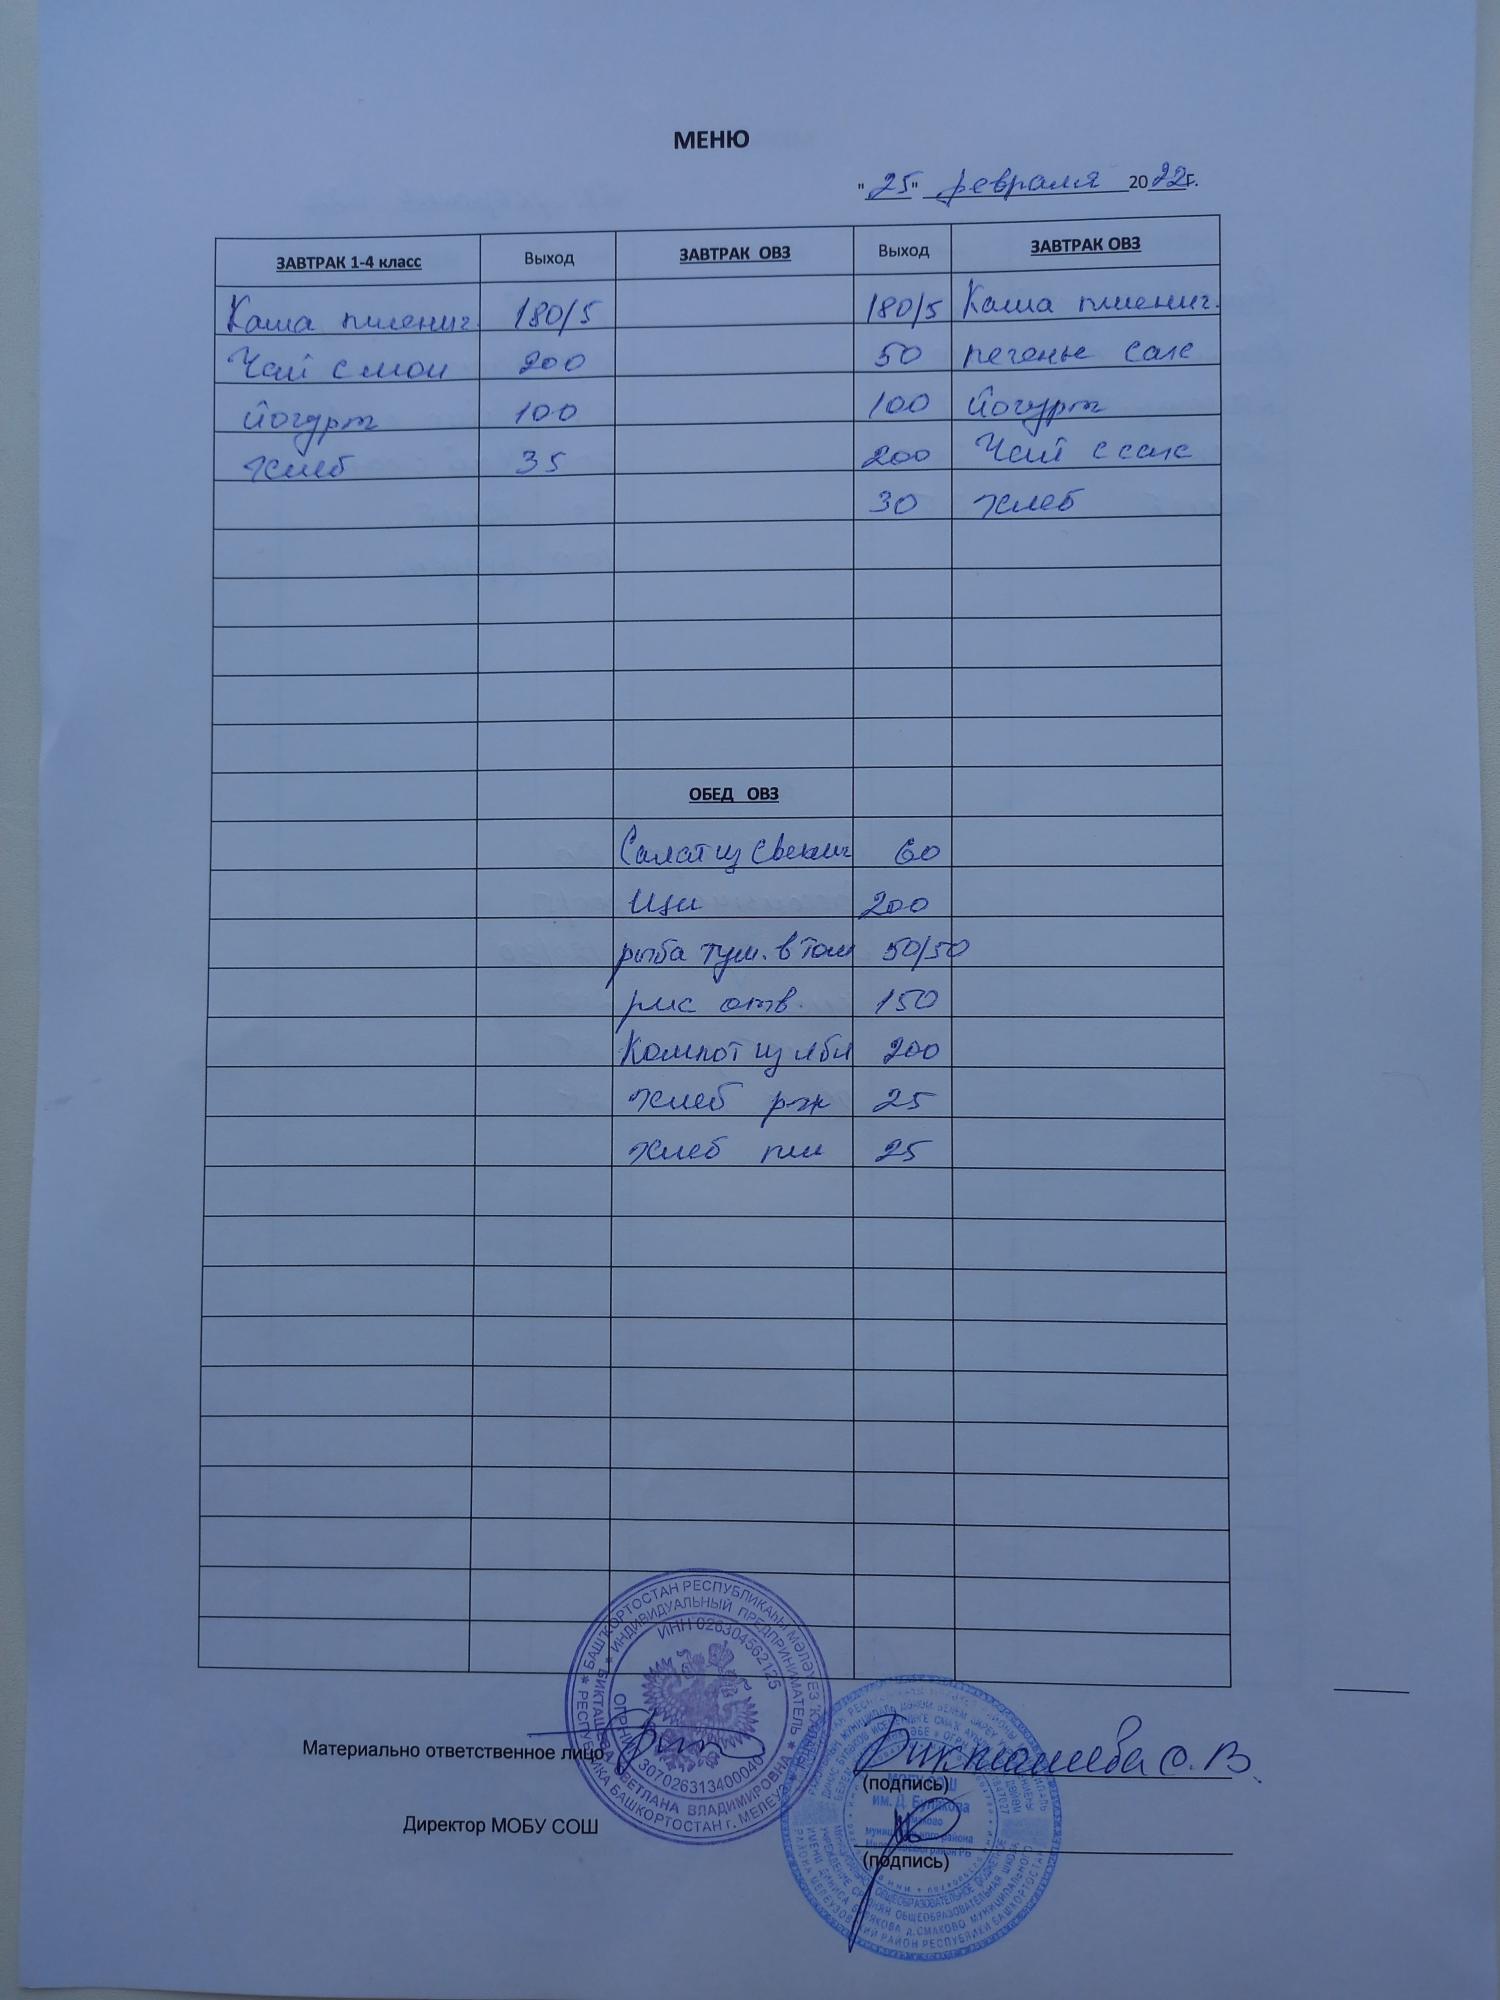 МЕНЮ
"25" февраля 2022г.
ЗАВТРАК 1-4 класс Выход ЗАВТРАК ОВЗ Выход ЗАВТРАК ОВЗ
Каша пшенич. 180/5 180/5 Каша пшенич.
Чай с мол 200 50 печенье сах
йогурт 100 100 йогурт
хлеб 35 200 Чай с сах
30 хлеб
ОБЕД ОВЗ
Салат из свеклы 60
Щи 200
рыба туш. в том 50/50
рис отв. 150
Компот из ябл 200
хлеб рж 25
хлеб пш 25
БАШҠОРТОСТАН РЕСПУБЛИКАҺЫ МӘЛӘҮЕЗ
РЕСПУБЛИКА БАШКОРТОСТАН г. МЕЛЕУЗ
ИНДИВИДУАЛЬНЫЙ ПРЕДПРИНИМАТЕЛЬ
БИКТАШЕВА СВЕТЛАНА ВЛАДИМИРОВНА
ИНН 026304562125
ОГРНИП 307026313400040
Материально ответственное лицо Бикташева С. В.
(подпись)
МОБУ СОШ
им. Д. Булякова
Директор МОБУ СОШ
(подпись)